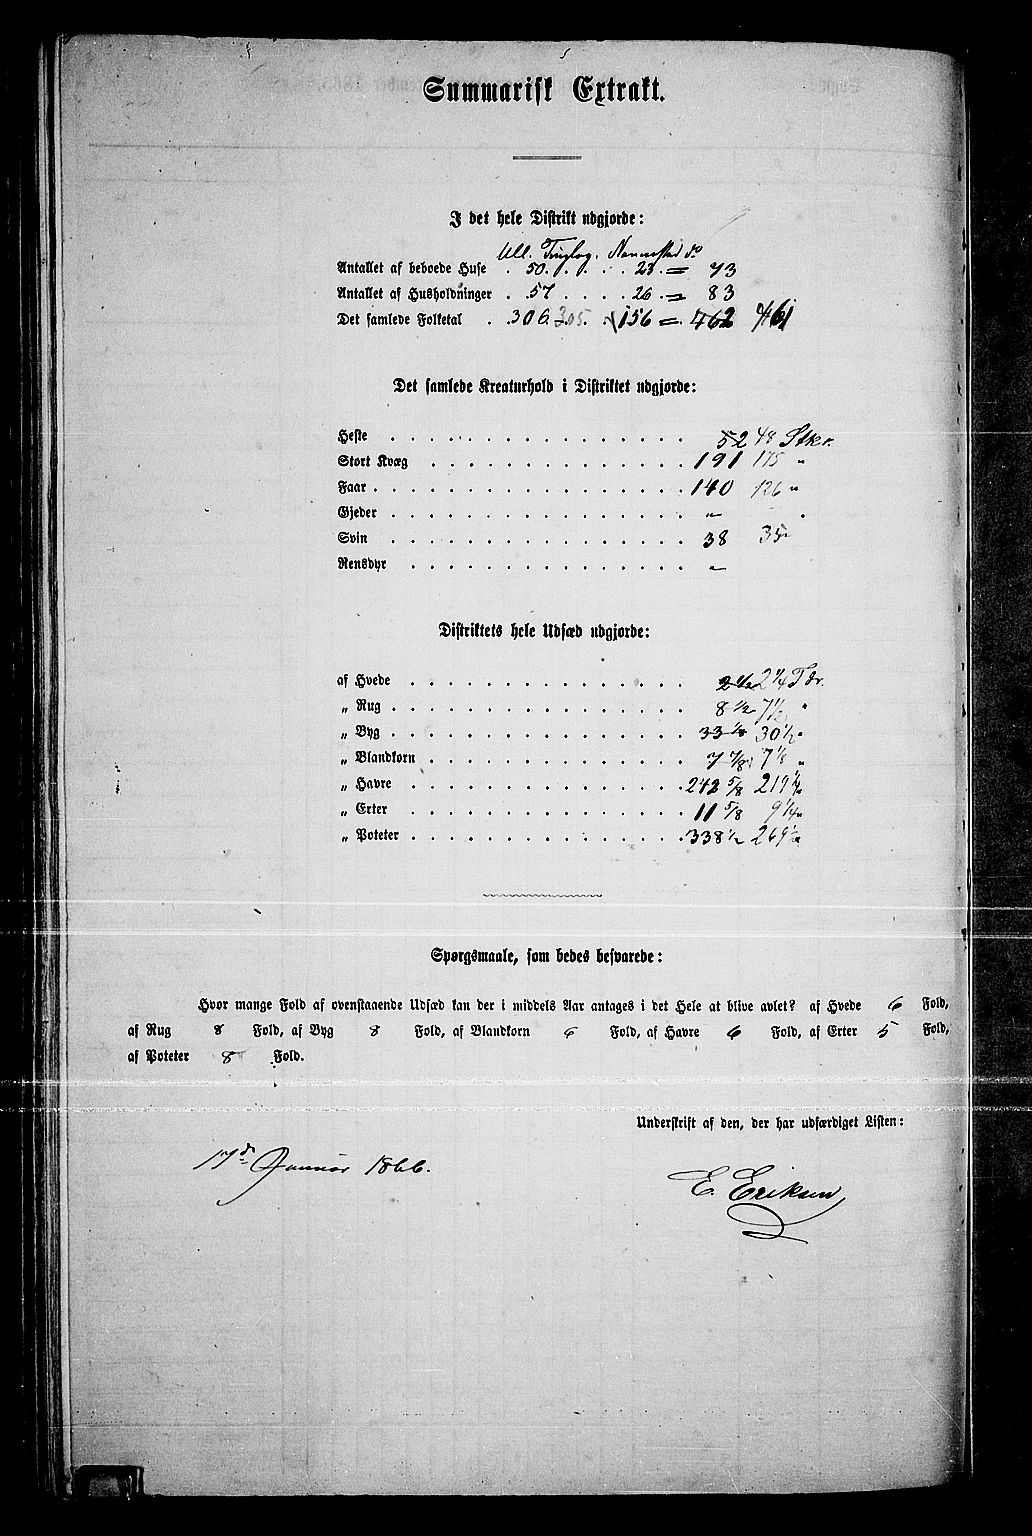 Summarisk Extrakt.
I det hele Distrikt udgjorde:
Ull. Tinglag. Nannestad do
Antallet af beboede Huse . 50. . . . . 23 = 73
Antallet af Husholdninger . . 57 . . . . 26 . = 83
Det samlede Folketal . . 306. 305 . . 156 = 462 461
Det samlede Kreaturhold i Distriktet udgjorde:
Heste . . . . . . . . . . . . 52 48 Stkr.
Stort Kvæg . . . . . . . . . . . . 191 175 "
Faar . . . . . . . . . . . . 140 126 "
Gjeder . . . . . . . . . . . . " "
Svin . . . . . . . . . . . . 38 35 "
Rensdyr . . . . . . . . . . . . "
Distriktets hele Udsæd udgjorde:
af Hvede . . . . . . . . . . . . 2 1/2 2 1/4 Tdr.
„ Rug . . . . . . . . . . . . 8 1/2 7 1/2 "
„ Byg . . . . . . . . . . . . 33 1/8 30 1/2 "
„ Blandkorn . . . . . . . . . . . . 7 7/8 7 1/8 "
„ Havre . . . . . . . . . . . . 242 5/8 219 "
„ Erter . . . . . . . . . . . . 11 5/8 9 1/4 "
„ Poteter . . . . . . . . . . . . 338 1/2 269 1/2 "
Spørgsmaale, som bedes besvarede:
Hvor mange Fold af ovenstaaende Udsæd kan der i middels Aar antages i det Hele at blive avlet? af Hvede 6 Fold,
af Rug 8 Fold, af Byg 8 Fold, af Blandkorn 6 Fold, af Havre 6 Fold, af Erter 5 Fold,
af Poteter 8 Fold.
Underskrift af den, der har udfærdiget Listen:
17d Januar 1866.
E. Eriksen